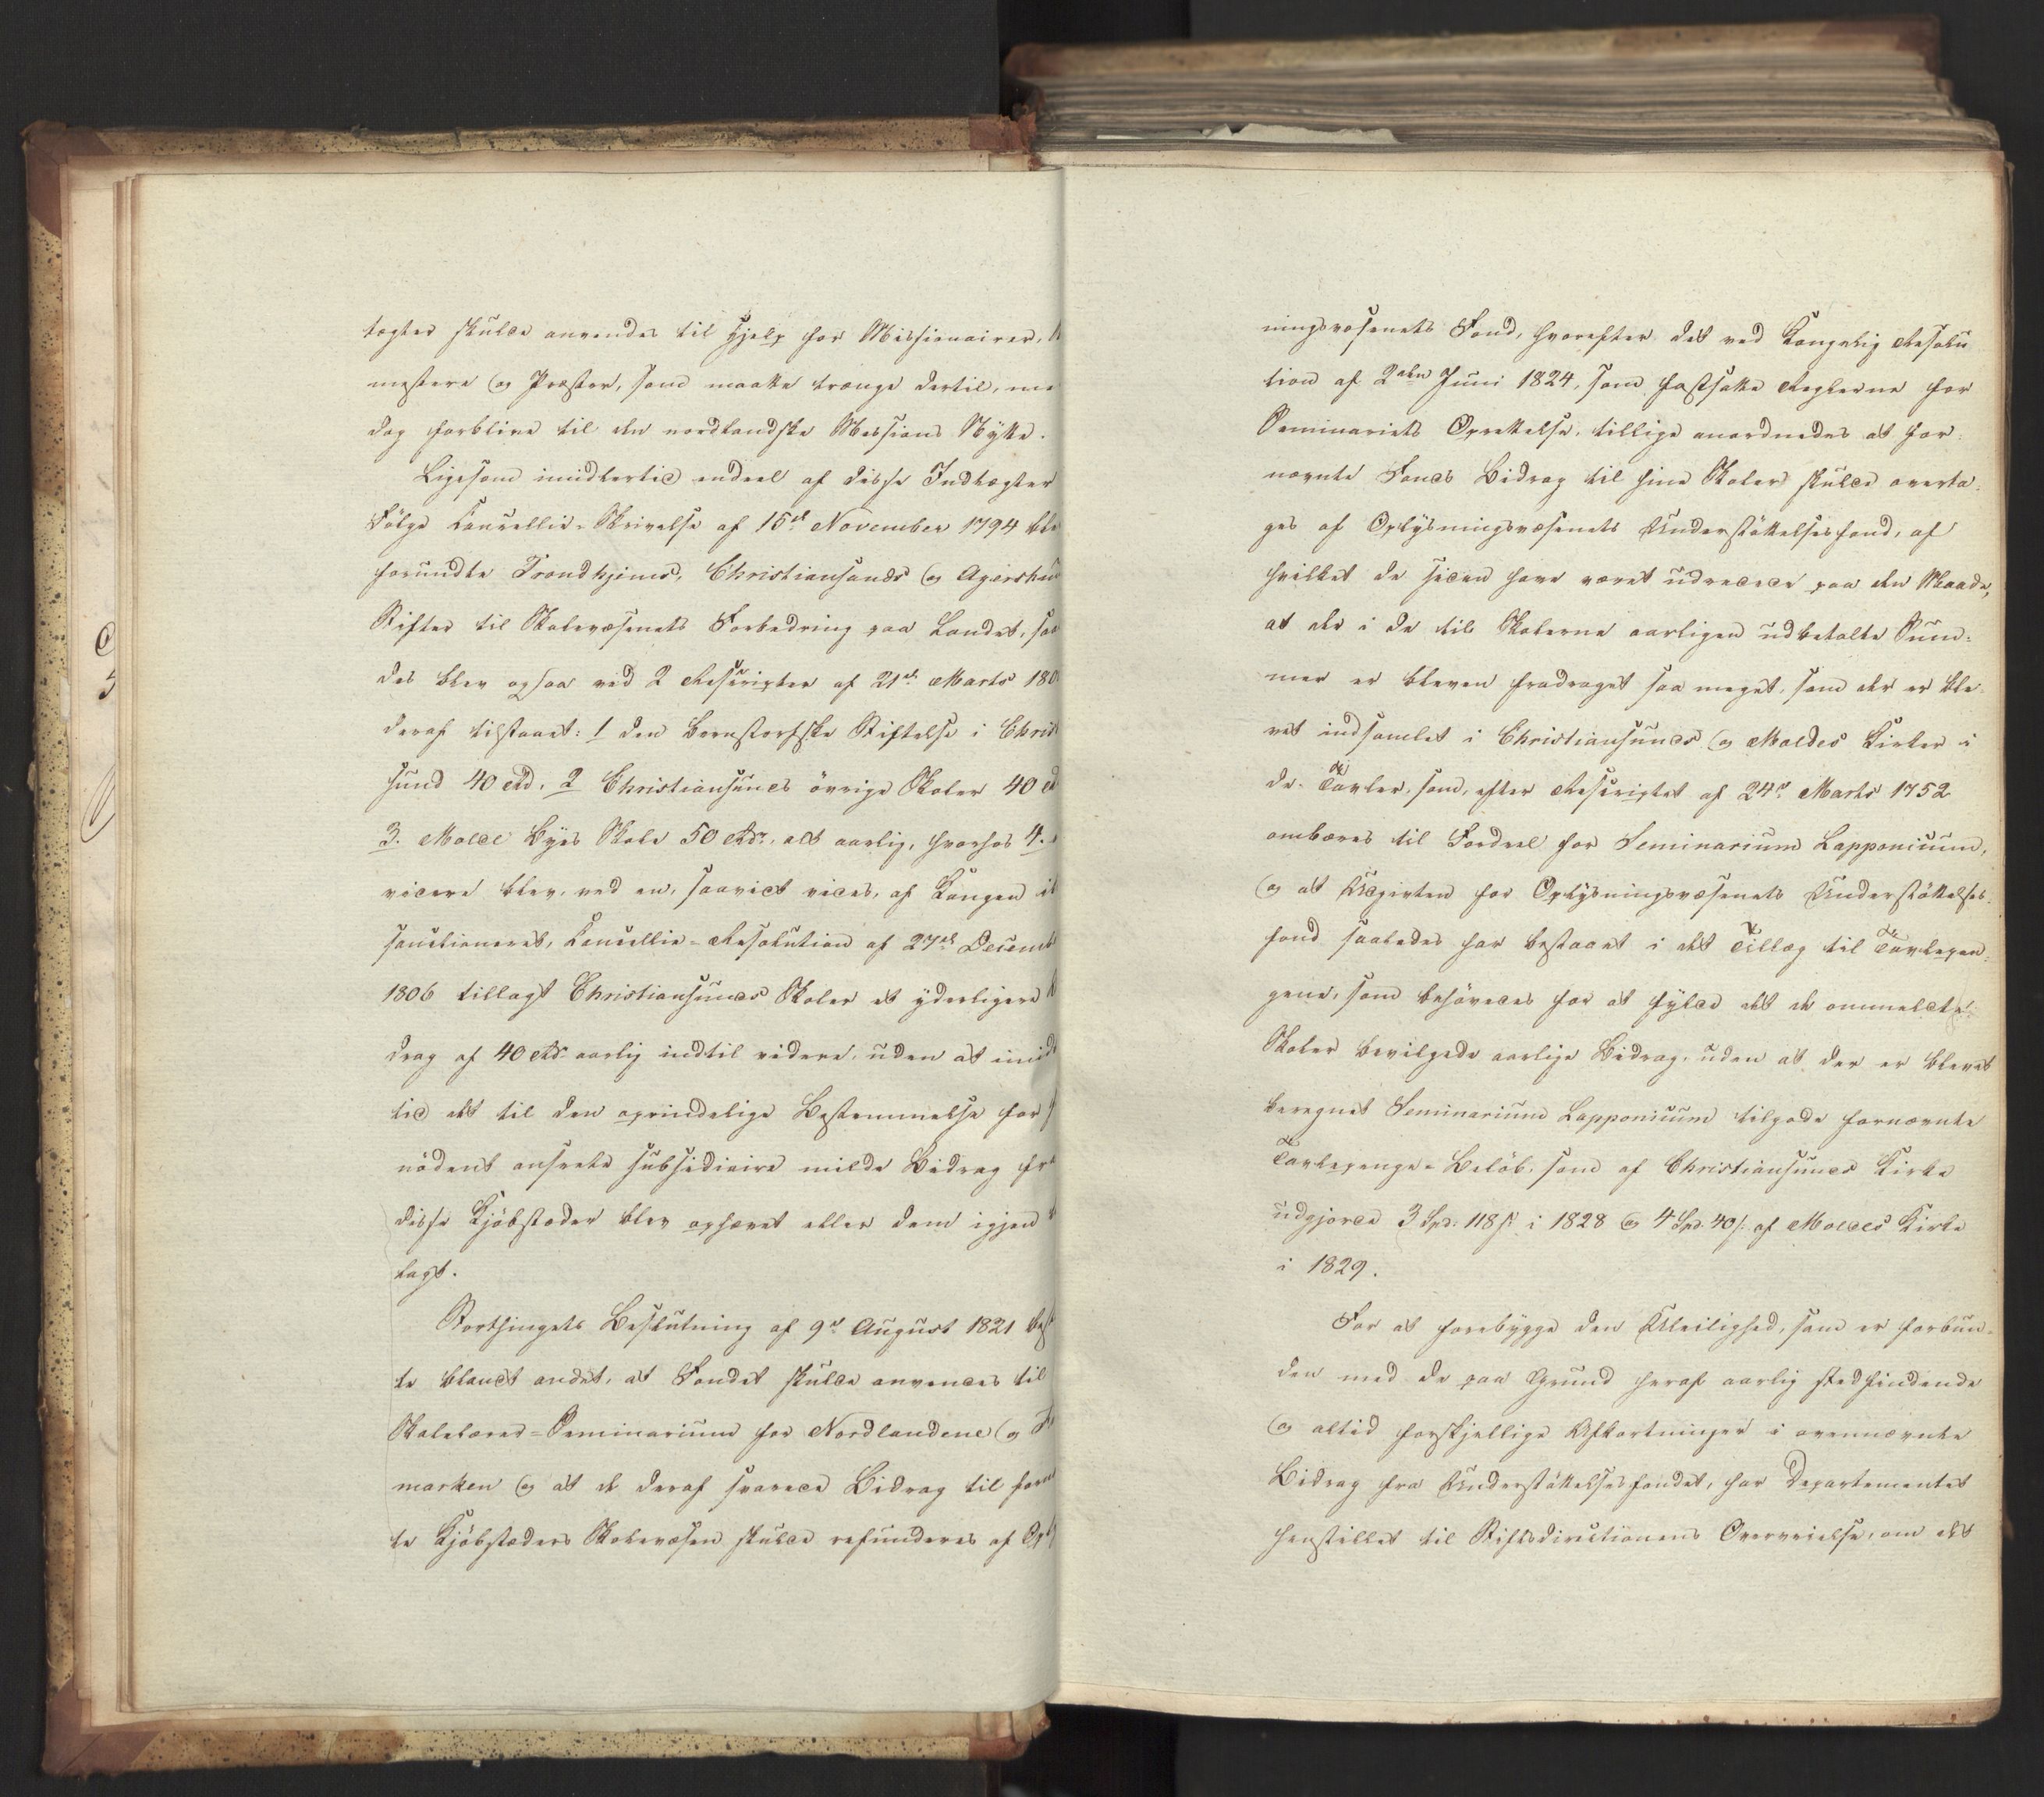 tægter skulde anvendes til Hjelp for Missionairer,
mestere og Præster, som maatte trænge dertil, me
dog forblive til den nordlandske Missions Nytte.
Ligesom imidlertid endeel af disse Indtægter
Følge Cancellie-Skrivelse af 15de November 1794 ble
forundte Trondhjems, Christiansands og Agershuu
Stifter til Skolevæsenets Forbedring paa Landet, saa
des blev ogsaa ved 2 Rescripter af 21de Marts 180
deraf tilstaaet: 1 den Bernstorfske Stiftelse i Christ
sund 40 Rd. 2 Christiansunds övrige Skoler 40 R
3. Molde Byes Skole 50 Rdr., alt aarlig, hvorhos 4.
videre blev, ved en, saavidt vides, af Kongen i
sanctioneret, Cancellie-Resolution af 27de Decemb
1806 tillagt Christiansunds Skoler et yderligere
drag af 40 Rdr aarlig indtil videre, uden at imid
tid det til den oprindelige Bestemmelse for
nödent ansete subsidiaire milde Bidrag fra
disse Kjöbstæder blev ophævet eller dem igjen
lagt.
Storthingets Beslutning af 9de August 1821 best
te blandt andet, at Fondet skulde anvendes til
Skolelærer-Seminarium for Nordlandene og Fi
marken og at de deraf svarede Bidrag til forn
te Kjöbstæders Skolevæsen skulde refunderes af Opl
ningsvæsenets Fond, hvorefter det ved Kongelig Resolu
tion af 2den Juni 1824, som fastsatte Reglerne for
Seminariets Oprettelse, tillige anordnedes at for-
nævnte Fonds Bidrag til hine Skoler skulde overta-
ges af Oplysningsvæsenets Understöttelsesfond, af
hvilket de siden have været udredede paa den Maade,
at der i de til Skolerne aarligen udbetalte Sum-
mer er bleven fradraget saa meget, som der er ble-
vet indsamlet i Christiansunds og Moldes Kirker i
de Tavler, som, efter Rescriptet af 24de Marts 1752
ombæres til Fordeel for Seminarium Lapponicum,
og at Udgivten for Oplysningsvæsenets Understöttelses-
fond saaledes har bestaaet i det Tillæg til Tavlepen-
gene, som behövedes for at fylde det de ommeldte
Skoler bevilgede aarlige Bidrag, uden at der er blevet
beregnet Seminarium Lapponicum tilgode fornævnte
Tavlepenge-Belöb, som af Christiansunds Kirke
udgjorde 3 Spd. 118 s i 1828 og 4 Spd. 40 s. af Moldes Kirke
i 1829.
For at forebygge den Uleilighed, som er forbun-
den med de paa Grund heraf aarlig stedfindende
og altid forskjellige Afkortninger i ovennævnte
Bidrag fra Understöttelsesfondet, har Departementet
henstillet til Stiftsdirectionens Overveielse, om det